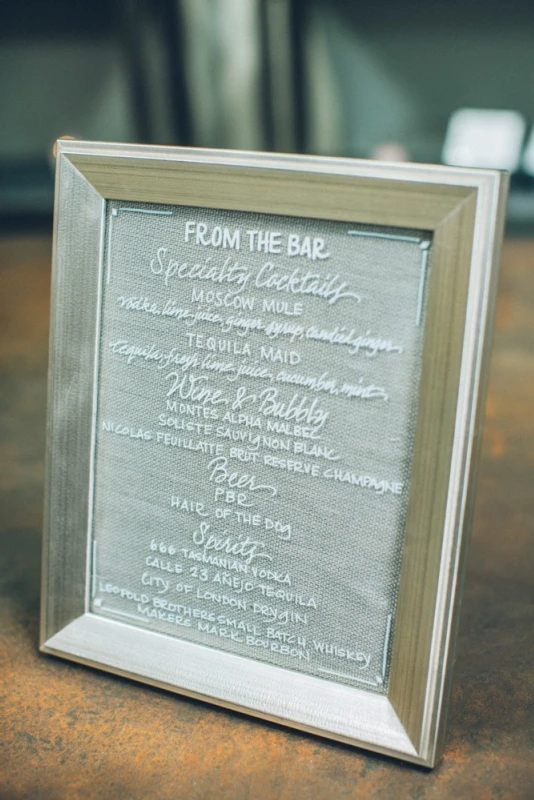 FROM THE BAR
Specialty Cocktails
MOSCOW MULE
vodka, lime juice, ginger syrup, candied ginger
TEQUILA MAID
tequila, fresh lime juice, cucumber, mint
Wine & Bubbly
MONTES ALPHA MALBEC
SOLISTE SAUVIGNON BLANC
NICOLAS FEUILLATTE BRUT RESERVE CHAMPAGNE
Beer
PBR
HAIR OF THE DOG
Spirits
666 TASMANIAN VODKA
CALLE 23 AÑEJO TEQUILA
CITY OF LONDON DRY GIN
LEOPOLD BROTHERS SMALL BATCH WHISKEY
MAKERS MARK BOURBON